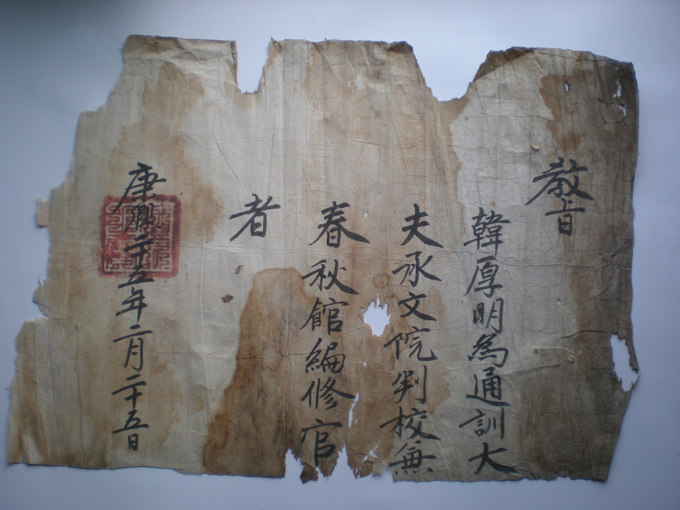 教旨
韓厚明為通訓大
夫承文院判校兼
春秋館編修官
者
康熙二十五年二月二十五日